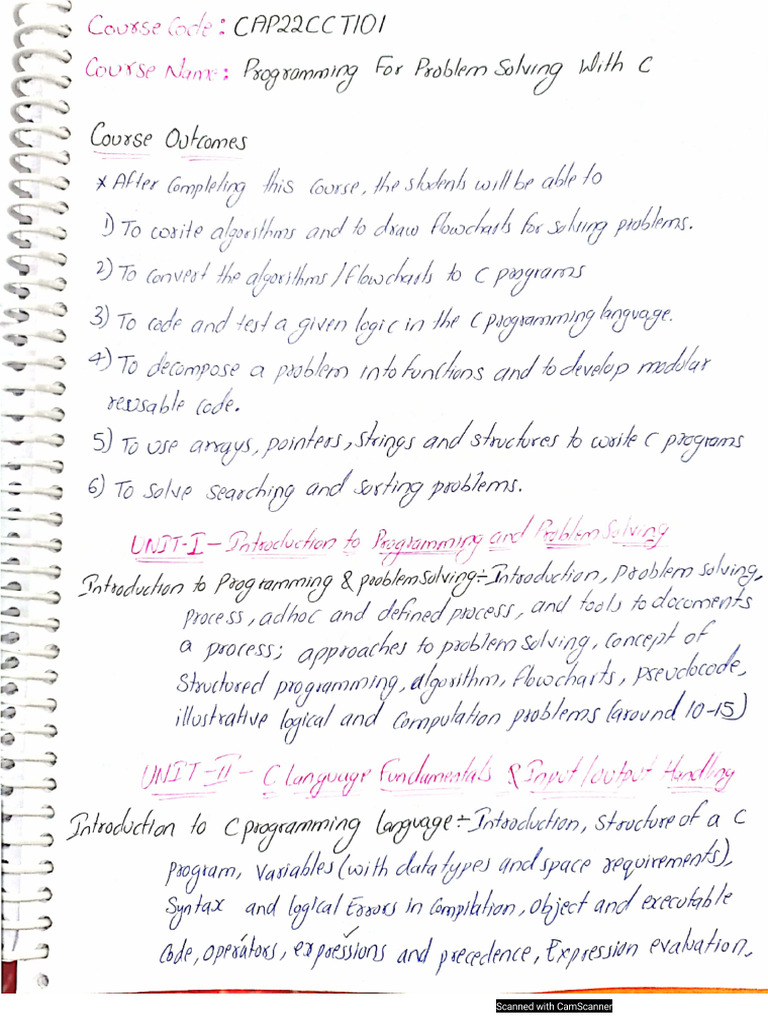 Course Code: CAP22CCT101
Course Name: Programming For Problem Solving With C
Course Outcomes
* After Completing this course, the students will be able to
1) To write algorithms and to draw flowcharts for solving problems.
2) To convert the algorithms/flowcharts to C programs
3) To code and test a given logic in the C programming language.
4) To decompose a problem into functions and to develop modular
reusable code.
5) To use arrays, pointers, strings and structures to write C programs
6) To solve searching and sorting problems.
UNIT-I - Introduction to Programming and Problem Solving
Introduction to Programming & problem solving:- Introduction, problem solving,
process, adhoc and defined process, and tools to documents
a process; approaches to problem solving, concept of
Structured programming, algorithm, flowcharts, pseudocode,
illustrative logical and Computation problems (around 10-15)
UNIT-II - C Language Fundamentals & Input/output Handling
Introduction to C programming language:- Introduction, Structure of a C
program, variables (with data types and space requirements),
Syntax and logical Errors in Compilation, object and executable
Code, operators, expressions and precedence, Expression evaluation,
Scanned with CamScanner